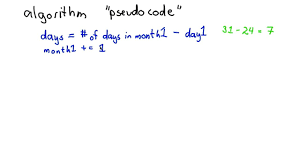 algorithm "pseudocode"
days = # of days in month1 - day1 31 - 24 = 7
month1 += 1